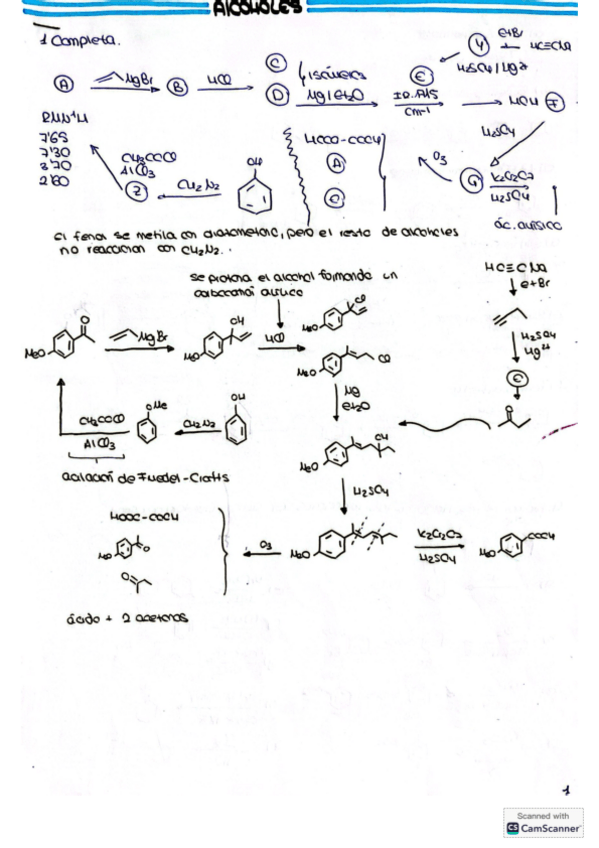 ALCOHOLES
1 Completa.
Y EtBr HC≡CNa
H2SO4/Hg2+
A MgBr B HCl C
D 4 isómeros
Mg/Et2O E
cm-1
HCl F
RMN 1H
7'65
7'30
3'70
2'60
CH3COCl
AlCl3
Z CH2N2
OH
HOOC-COOH
A
E
O3 G K2Cr2O7
H2SO4
H2SO4
ác. anísico
El fenol se metila con diazometano, pero el resto de alcoholes
no reaccionan con CH2N2.
Se protona el alcohol formando un
carbocatión alílico
HC≡CNa
EtBr
H2SO4
Hg2+
E
O
MeO
MgBr
OH
MeO
HCl
Cl
MeO
MeO
Cl
Mg
Et2O
CH3COCl
AlCl3
OMe
CH2N2
OH
acilación de Friedel-Crafts
OH
MeO
H2SO4
HOOC-COOH
MeO
O
O
O3
MeO
K2Cr2O7
H2SO4
MeO
COOH
ácido + 2 acetonas
1
Scanned with
CS CamScanner